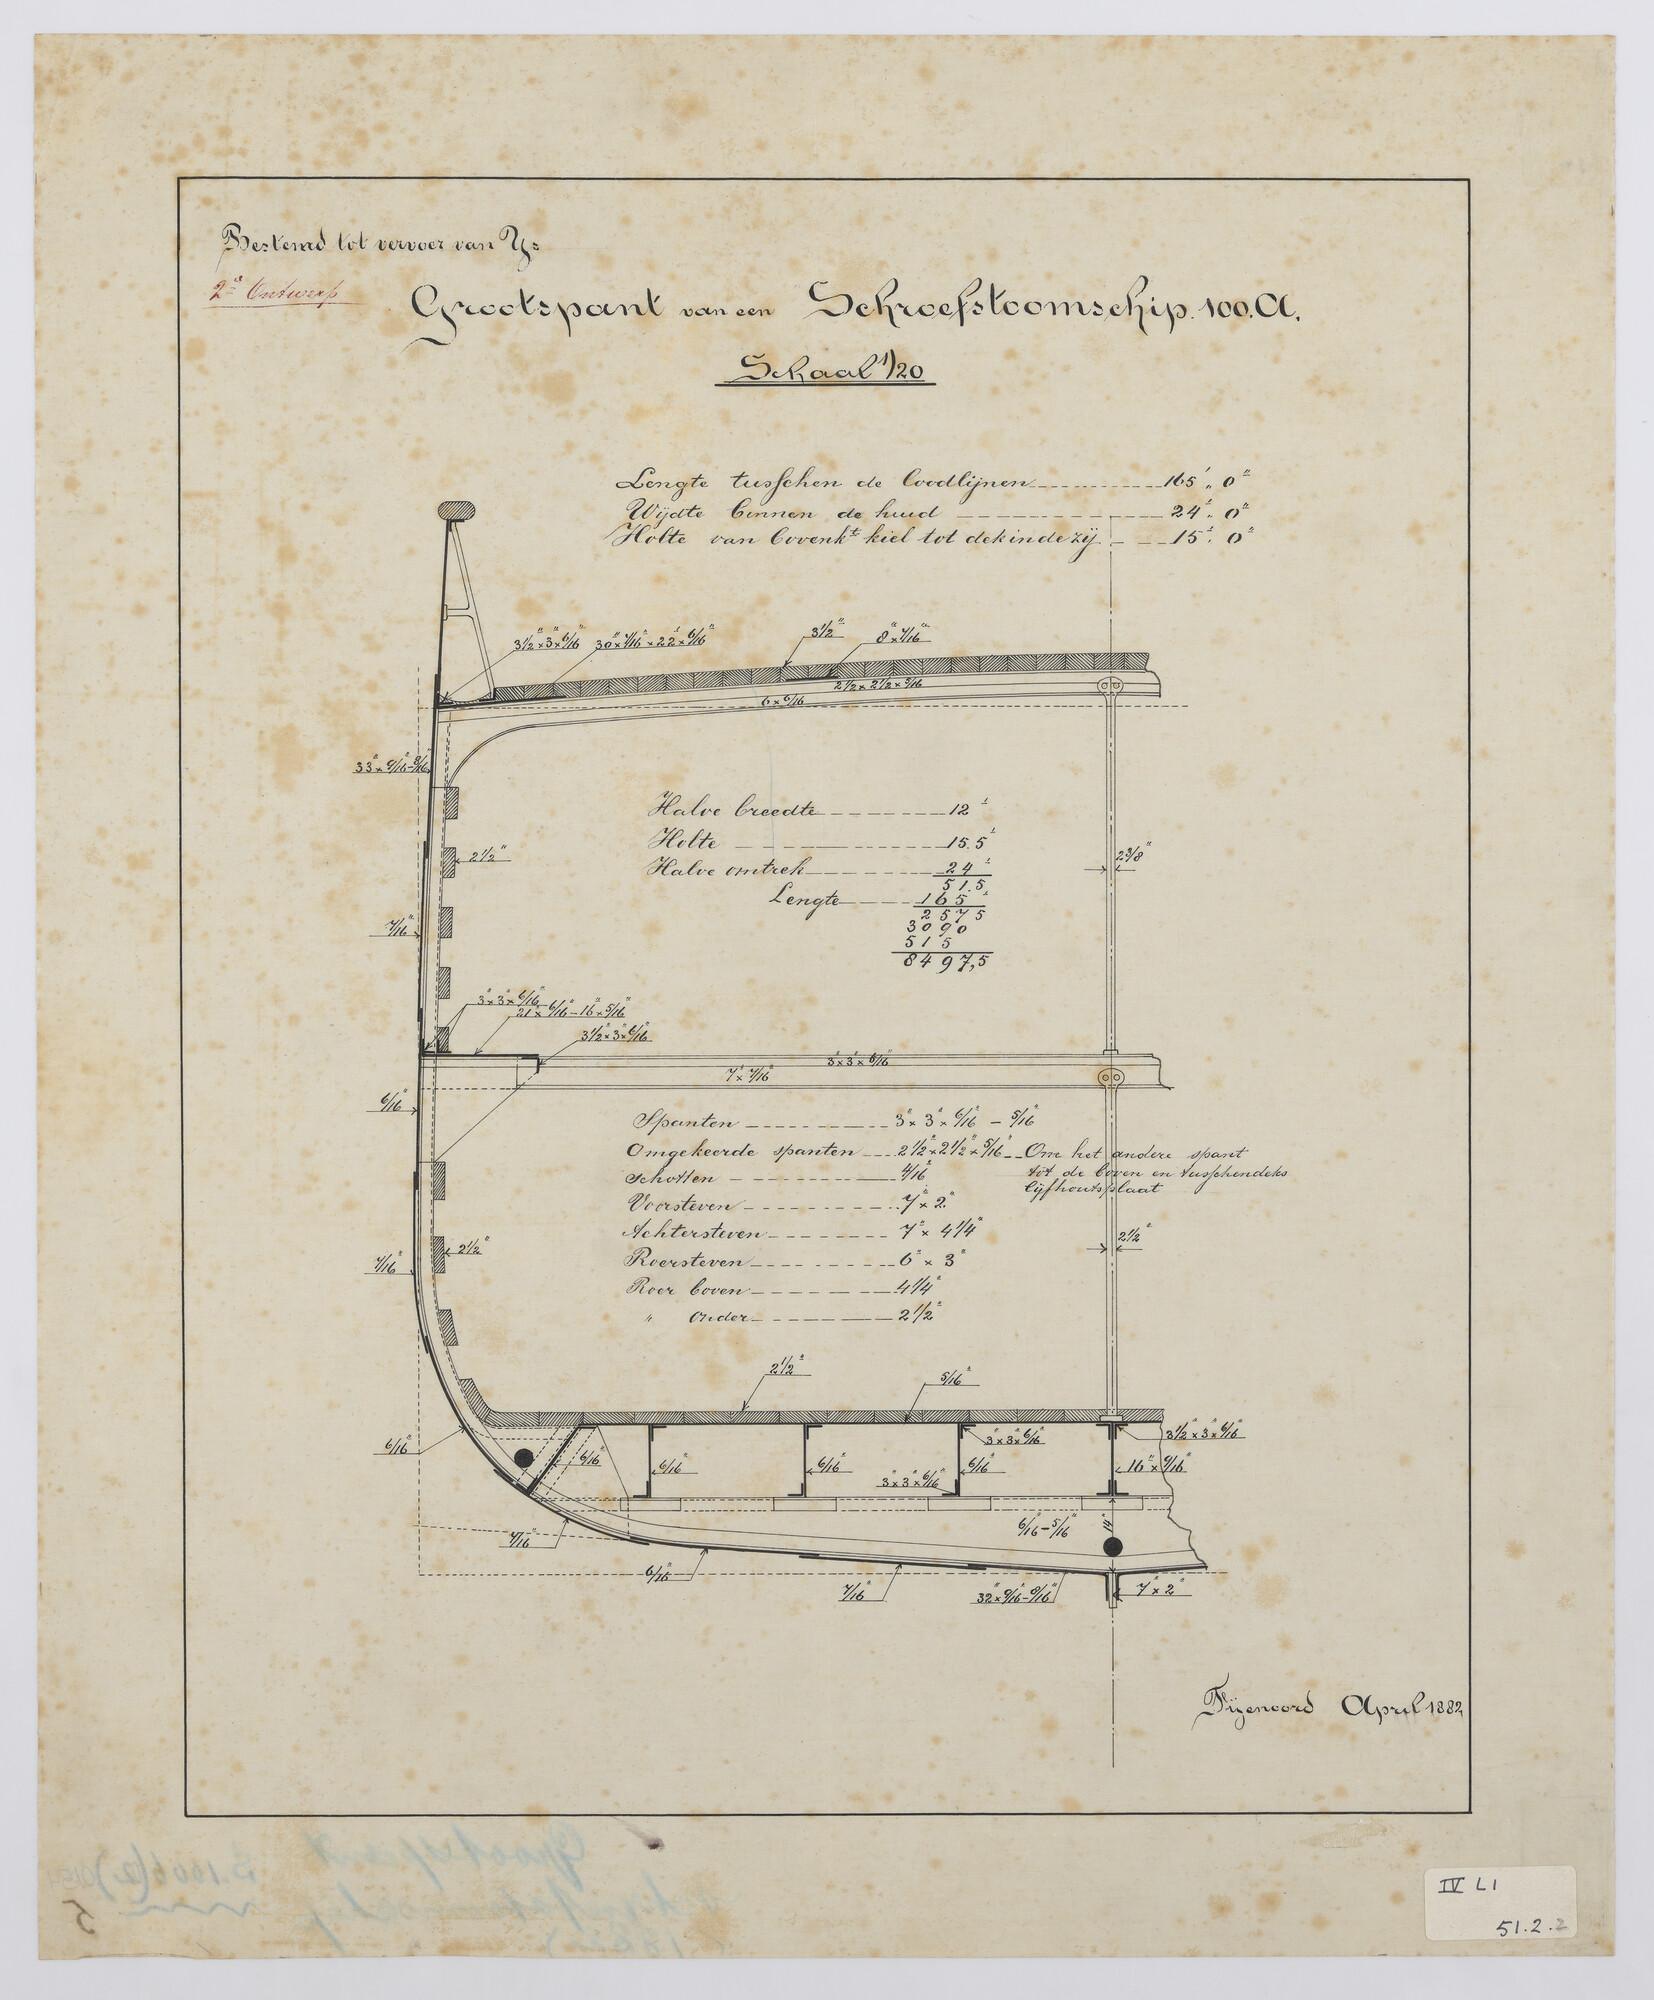 Bestemd tot vervoer van Ys
2e Ontwerp
Grootspant van een Schroefstoomschip. 100.A.
Schaal 1/20
Lengte tusschen de loodlijnen 165' „ 0"
Wijdte binnen de huid 24' „ 0"
Holte van bovenkt kiel tot dek in de zij 15' „ 0"
3 1/2" x 3" x 6/16" 30" x 7/16" x 22" x 6/16" 3 1/2" 8" x 7/16"
2 1/2 x 2 1/2 x 5/16"
6 x 6/16
Halve breedte 12'
Holte 15.5'
Halve omtrek 24'
51.5
Lengte 165'
2575
3090
515
8497,5
2 1/2"
2 3/8"
7/16"
3" x 3" x 6/16"
21" x 6/16" - 16" x 5/16"
3 1/2" x 3" x 6/16"
3" x 3" x 6/16"
7" x 7/16"
6/16"
Spanten 3" x 3" x 6/16" - 5/16"
Omgekeerde spanten 2 1/2" x 2 1/2" x 5/16" Om het andere spant
tot de boven en tusschendeks
lijfhoutsplaat
Schotten 4/16"
Voorsteven 7" x 2"
Achtersteven 7" x 4 1/4"
Roersteven 6" x 3"
Roer boven 4 1/4"
" Onder 2 1/2"
2 1/2"
7/16"
2 1/2"
2 1/2" 5/16"
6/16"
6/16" 6/16" 6/16" 6/16"
3" x 3" x 6/16"
3" x 3" x 6/16"
3 1/2" x 3" x 6/16"
16" x 9/16"
6/16" - 5/16"
7/16"
6/16"
7/16"
7" x 2"
Fijenoord April 1882
IV L1
51.2.2
5